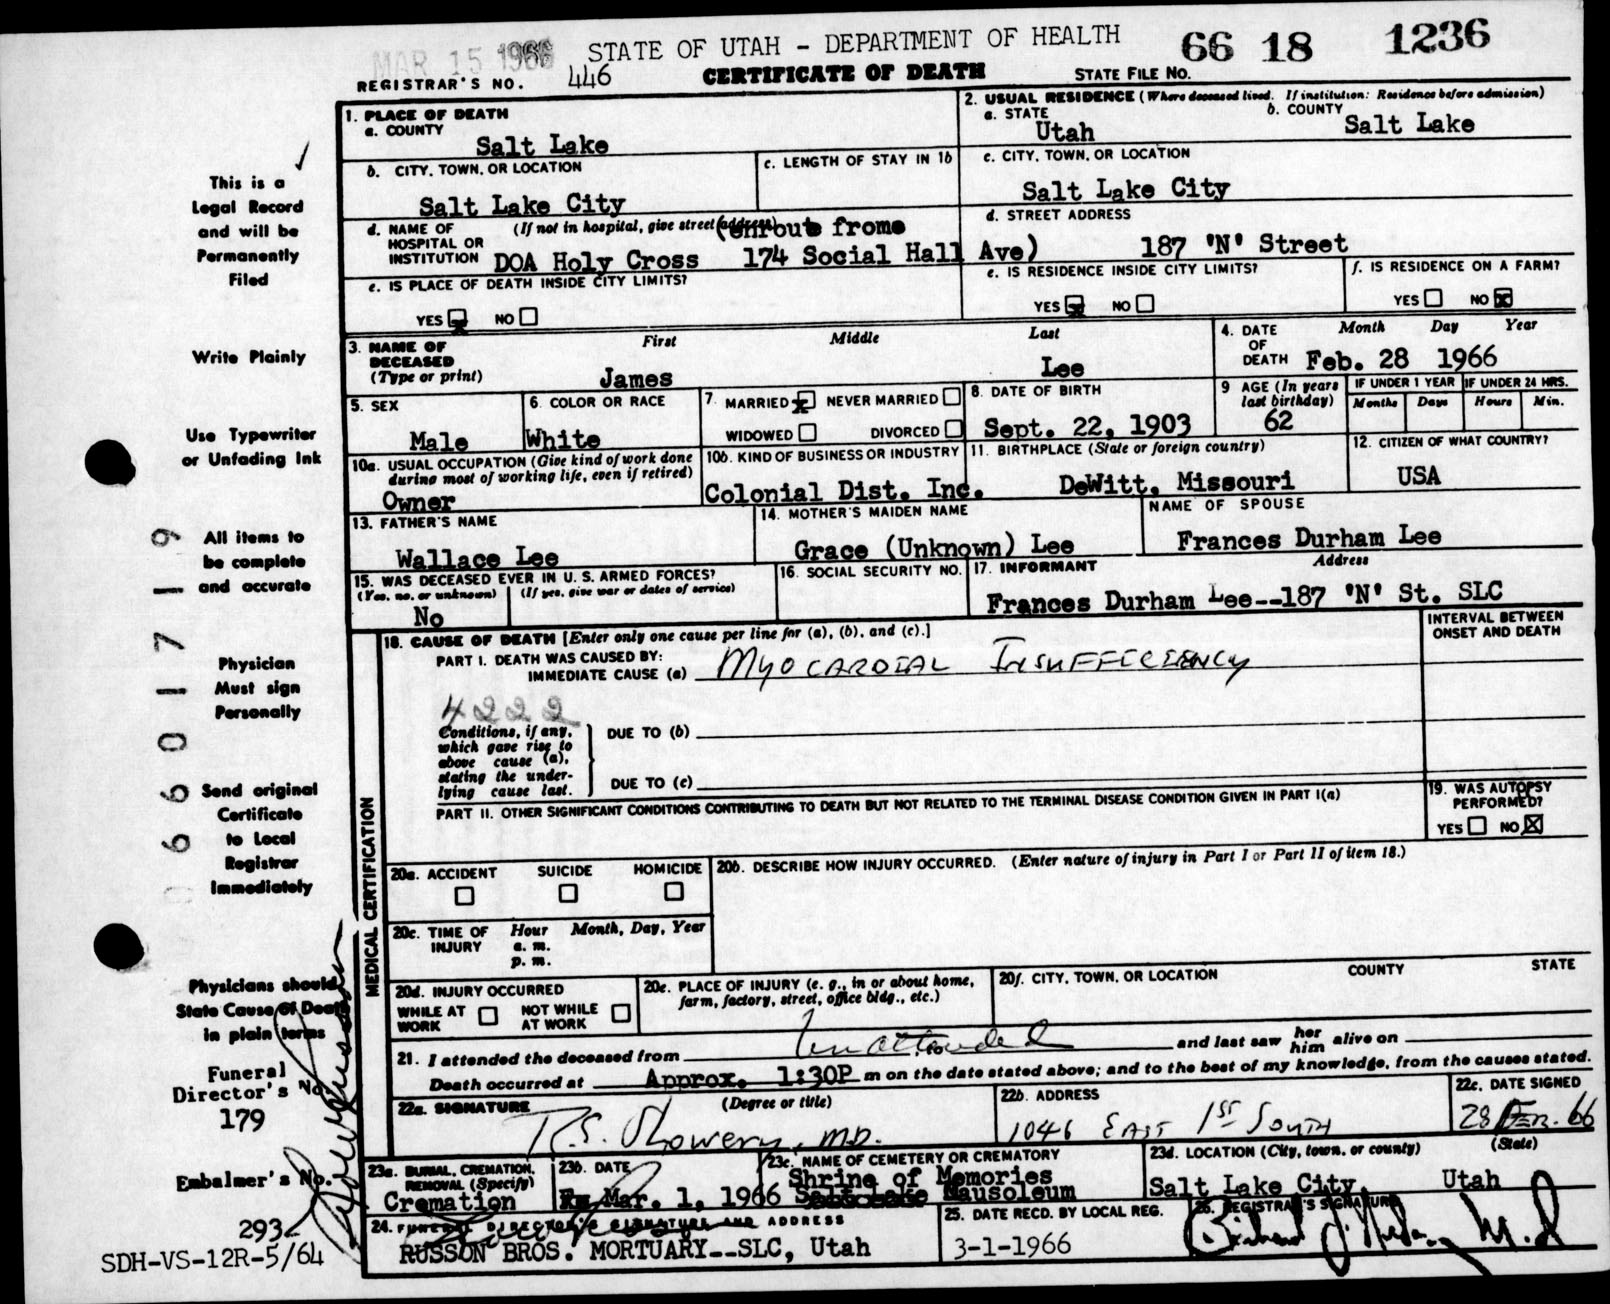 MAR 15 1966
STATE OF UTAH - DEPARTMENT OF HEALTH
66 18 1236
REGISTRAR'S NO. 446
CERTIFICATE OF DEATH
STATE FILE NO.
This is a
Legal Record
and will be
Permanently
Filed
Write Plainly
Use Typewriter
or Unfading Ink
All items to
be complete
and accurate
Physician
Must sign
Personally
Send original
Certificate
to Local
Registrar
Immediately
Physicians should
State Cause of Death
in plain terms
Funeral
Director's No.
179
Embalmer's No.
293
SDH-VS-12R-5/64
0 6 6 0 1 7 1 9
1. PLACE OF DEATH
a. COUNTY
Salt Lake
2. USUAL RESIDENCE (Where deceased lived. If institution: Residence before admission)
a. STATE
Utah
b. COUNTY
Salt Lake
b. CITY, TOWN, OR LOCATION
Salt Lake City
c. LENGTH OF STAY IN 1b
c. CITY, TOWN, OR LOCATION
Salt Lake City
d. NAME OF HOSPITAL OR INSTITUTION
(If not in hospital, give street address)
(enroute frome
DOA Holy Cross 174 Social Hall Ave)
d. STREET ADDRESS
187 'N' Street
e. IS PLACE OF DEATH INSIDE CITY LIMITS?
YES x NO
e. IS RESIDENCE INSIDE CITY LIMITS?
YES x NO
f. IS RESIDENCE ON A FARM?
YES NO x
3. NAME OF
DECEASED
(Type or print)
First Middle Last
James Lee
4. DATE
OF
DEATH
Month Day Year
Feb. 28 1966
5. SEX
Male
6. COLOR OR RACE
White
7. MARRIED x NEVER MARRIED
WIDOWED DIVORCED
8. DATE OF BIRTH
Sept. 22, 1903
9 AGE (In years
last birthday)
62
IF UNDER 1 YEAR
Months Days
IF UNDER 24 HRS.
Hours Min.
10a. USUAL OCCUPATION (Give kind of work done
during most of working life, even if retired)
Owner
10b. KIND OF BUSINESS OR INDUSTRY
Colonial Dist. Inc.
11. BIRTHPLACE (State or foreign country)
DeWitt, Missouri
12. CITIZEN OF WHAT COUNTRY?
USA
13. FATHER'S NAME
Wallace Lee
14. MOTHER'S MAIDEN NAME
Grace (Unknown) Lee
NAME OF SPOUSE
Frances Durham Lee
15. WAS DECEASED EVER IN U. S. ARMED FORCES?
(Yes, no, or unknown) (If yes, give war or dates of service)
No
16. SOCIAL SECURITY NO.
17. INFORMANT Address
Frances Durham Lee--187 'N' St. SLC
MEDICAL CERTIFICATION
18. CAUSE OF DEATH [Enter only one cause per line for (a), (b), and (c).]
INTERVAL BETWEEN
ONSET AND DEATH
PART I. DEATH WAS CAUSED BY:
IMMEDIATE CAUSE (a) MYOCARDIAL INSUFFICIENCY
4222
Conditions, if any,
which gave rise to
above cause (a),
stating the under-
lying cause last.
DUE TO (b)
DUE TO (c)
PART II. OTHER SIGNIFICANT CONDITIONS CONTRIBUTING TO DEATH BUT NOT RELATED TO THE TERMINAL DISEASE CONDITION GIVEN IN PART I(a)
19. WAS AUTOPSY
PERFORMED?
YES NO X
20a. ACCIDENT SUICIDE HOMICIDE
20b. DESCRIBE HOW INJURY OCCURRED. (Enter nature of injury in Part I or Part II of item 18.)
20c. TIME OF
INJURY
Hour Month, Day, Year
a. m.
p. m.
20d. INJURY OCCURRED
WHILE AT
WORK
NOT WHILE
AT WORK
20e. PLACE OF INJURY (e. g., in or about home,
farm, factory, street, office bldg., etc.)
20f. CITY, TOWN, OR LOCATION COUNTY STATE
21. I attended the deceased from Unattended to and last saw her him alive on
Death occurred at Approx. 1:30P m on the date stated above; and to the best of my knowledge, from the causes stated.
22a. SIGNATURE (Degree or title)
M.D.
22b. ADDRESS
1046 EAST 1ST SOUTH
22c. DATE SIGNED
28 FEB. 66
23a. BURIAL, CREMATION,
REMOVAL (Specify)
Cremation
23b. DATE
Mar. 1, 1966
23c. NAME OF CEMETERY OR CREMATORY
Shrine of Memories
Salt Lake Mausoleum
23d. LOCATION (City, town, or county) (State)
Salt Lake City, Utah
24. FUNERAL DIRECTOR'S SIGNATURE AND ADDRESS
RUSSON BROS. MORTUARY--SLC, Utah
25. DATE RECD. BY LOCAL REG.
3-1-1966
26. REGISTRAR'S SIGNATURE
M.D.